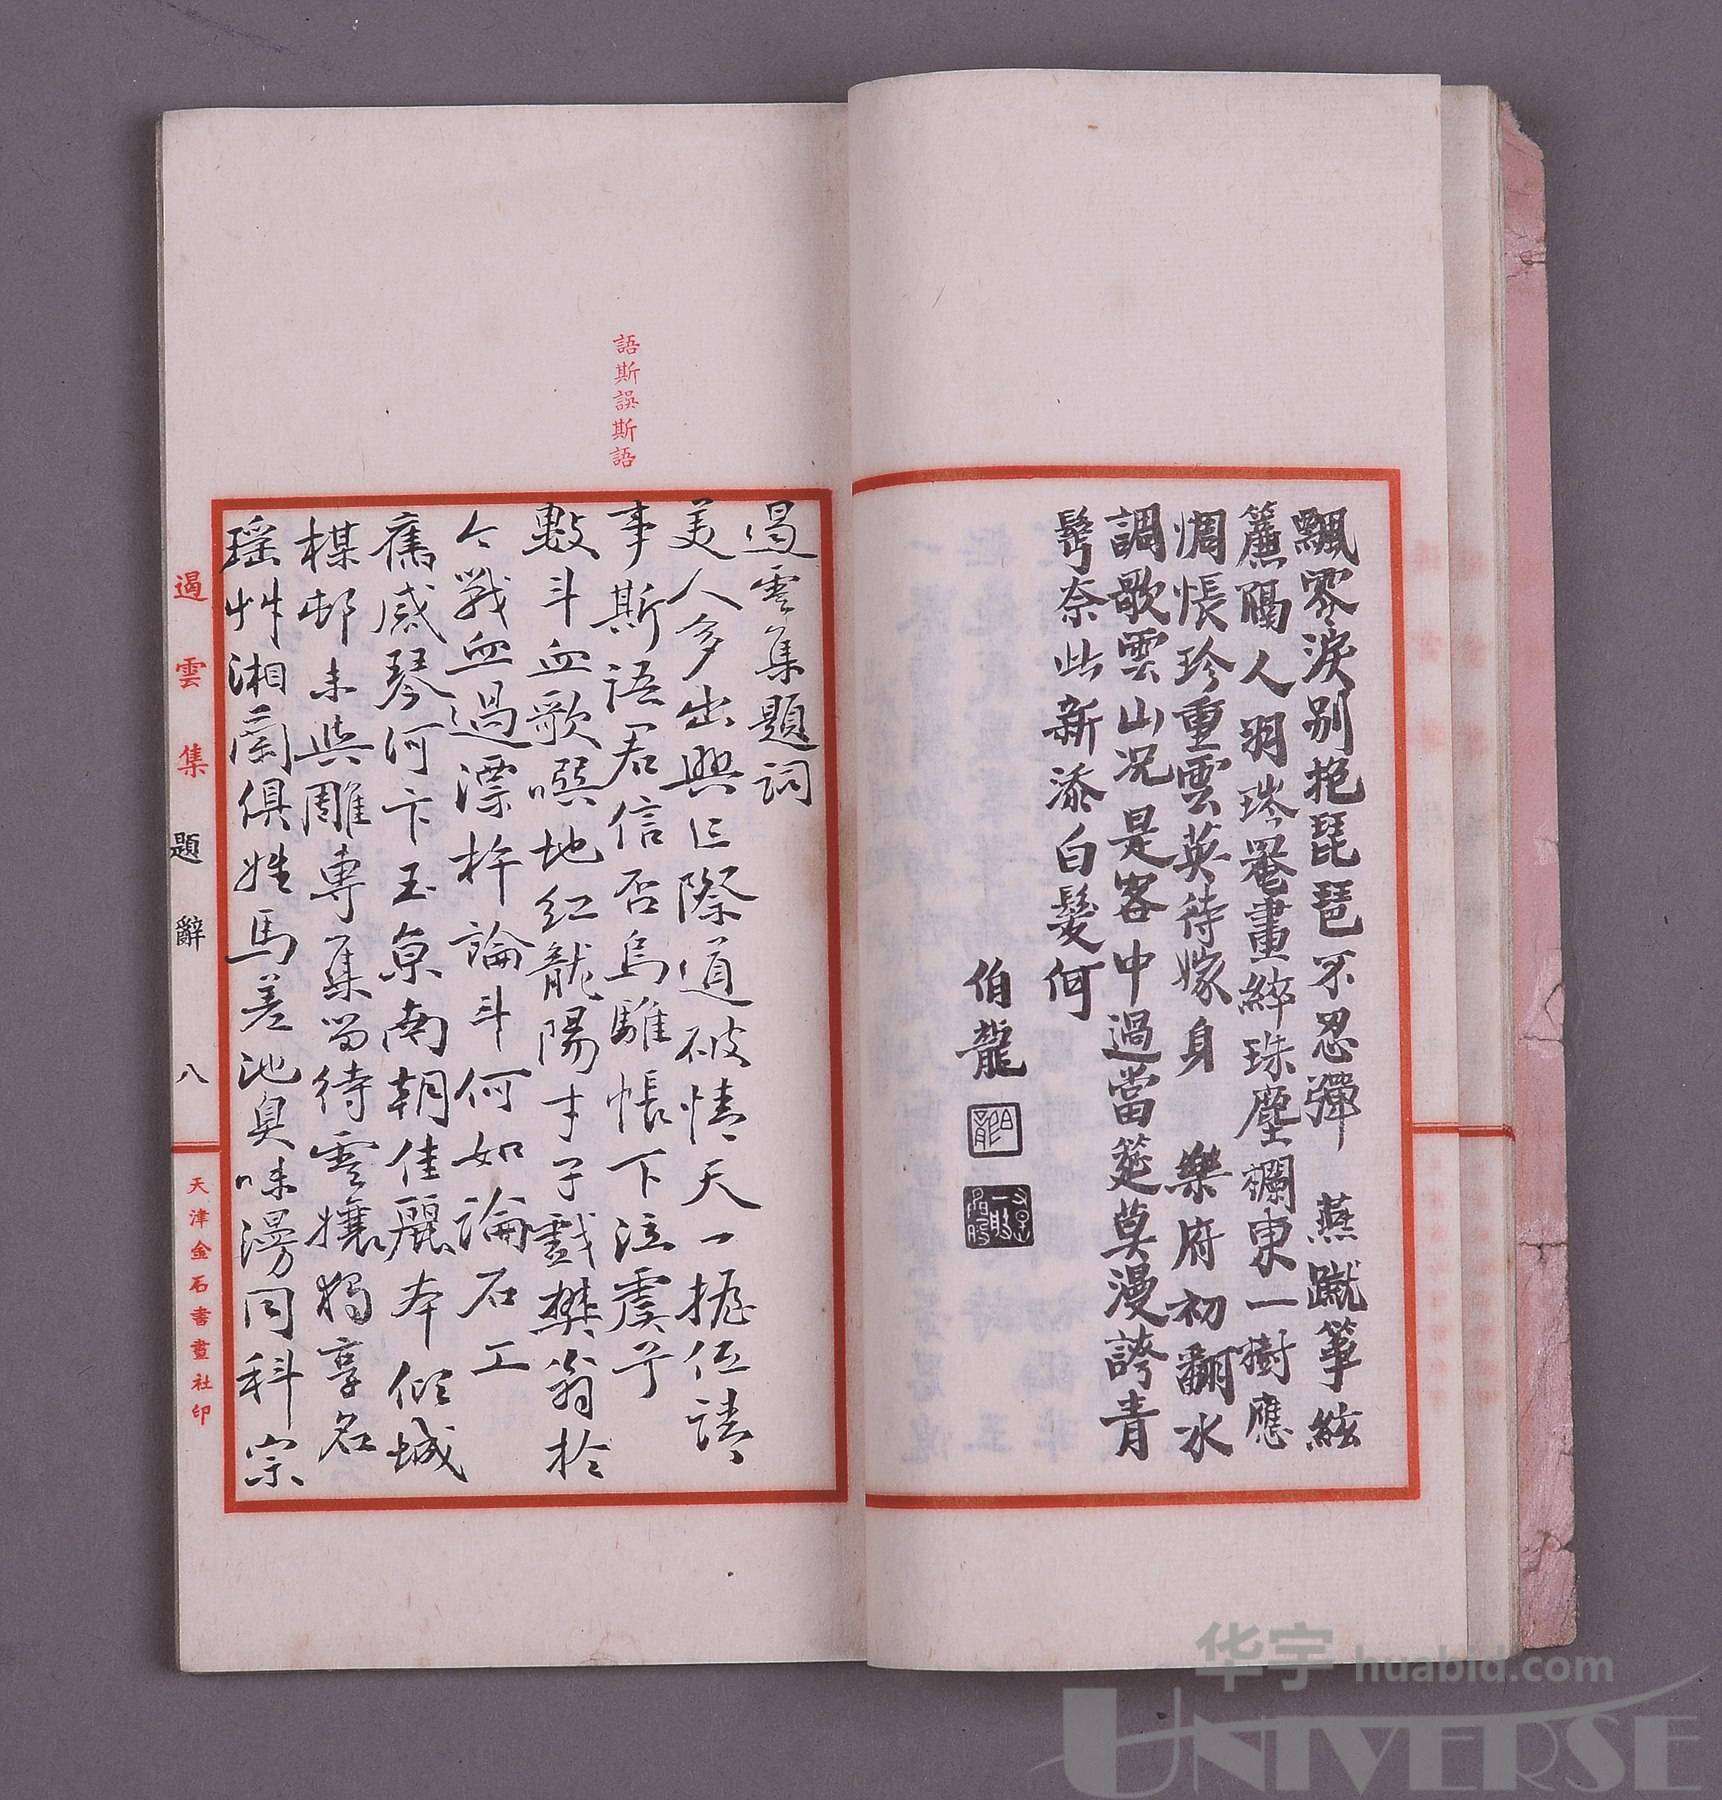 飄零淚別抱琵琶不忍彈　燕蹴箏絃
簾隔人羽琌罨畫綷珠塵襴東一樹應
惆悵珍重雲英待嫁身　樂府初翻水
調歌雲山况是客中過當筵莫漫誇青
鬢奈此新添白髮何
伯龍
語斯誤斯語
遏雲集題詞
美人多出興亡際道破情天一握伍請
事斯語君信否烏騅帳下泣虞兮
數斗血歌噀地紅龍陽才子戲樊翁於
今戰血過漂杵論斗何如論石工
舊感琴河卞玉京南朝佳麗本傾城
楳邨未與雕專集留待雲孃獨享名
瑶艸湘蘭俱姓馬差池臭味漫同科宗
遏雲集
題辭
八
天津金石書畫社印
华宇 huabid.com
UNIVERSE